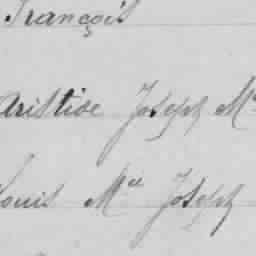 François
Aristide Joseph M
Louis Mᵉˡ Joseph